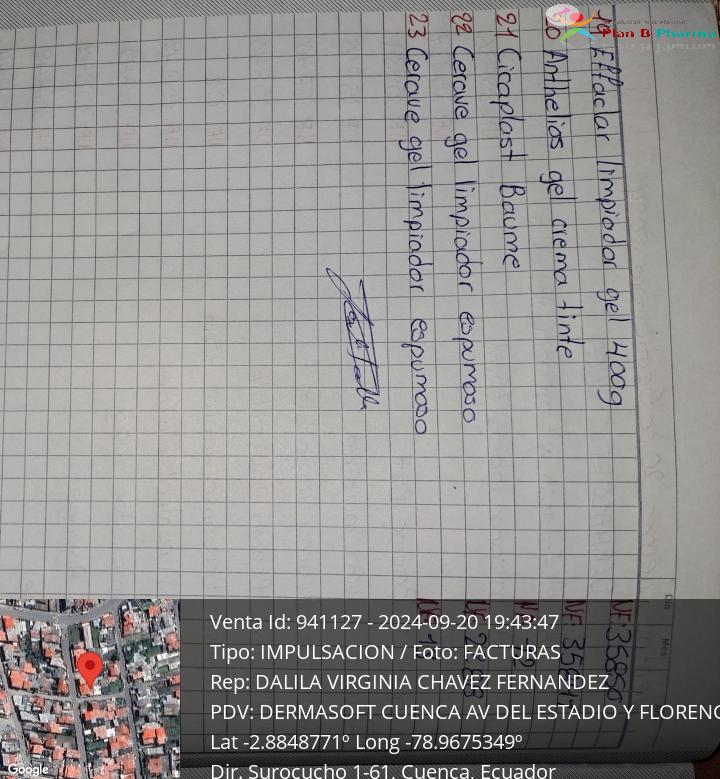 Plan B Pharma
19 Effaclar limpiador gel 400g
20 Anthelios gel crema tinte
21 Cicaplast Baume
22 Cerave gel limpiador espumoso
23 Cerave gel limpiador espumoso
Mes
Venta Id: 941127 - 2024-09-20 19:43:47
Tipo: IMPULSACION / Foto: FACTURAS
Rep: DALILA VIRGINIA CHAVEZ FERNANDEZ
PDV: DERMASOFT CUENCA AV DEL ESTADIO Y FLORENC
Lat -2.8848771º Long -78.9675349º
Dir. Surocucho 1-61, Cuenca, Ecuador
Google